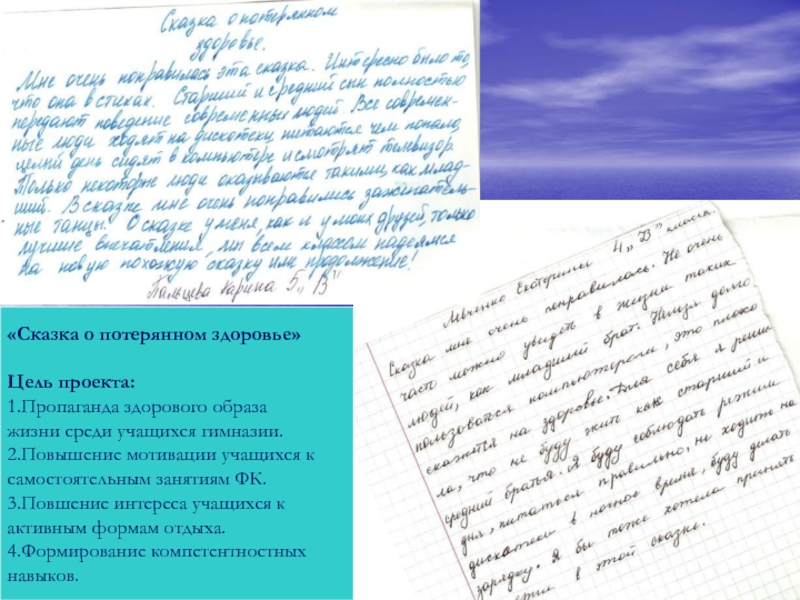 Сказка о потерянном
здоровье.
Мне очень понравилась эта сказка. Интересно было то,
что она в стихах. Старший и средний сын полностью
передают поведение современных людей. Все современ-
ные люди ходят на дискотеки, питаются чем попало,
целый день сидят в компьютере и смотрят телевизор.
Только некоторые люди оказываются такими, как млад-
ший. В сказке мне очень понравились зажигатель-
ные танцы. О сказке у меня, как и у моих друзей, только
лучшие впечатления, мы всем классом надеемся
на новую похожую сказку или продолжение!
Пальцева Карина 5 „В"
Левченко Екатерины 4 „В" класса.
Сказка мне очень понравилась. Не очень
часто можно увидеть в жизни таких
людей, как младший брат. Нельзя долго
пользоваться компьютером, это плохо
скажется на здоровье. Для себя я реши-
ла, что не буду жить как старший и
средний братья. Я буду соблюдать режим
дня, питаться правильно, не ходить на
дискотеки в ночное время, буду делать
зарядку. Я бы тоже хотела принять
в этой сказке.
«Сказка о потерянном здоровье»
Цель проекта:
1.Пропаганда здорового образа
жизни среди учащихся гимназии.
2.Повышение мотивации учащихся к
самостоятельным занятиям ФК.
3.Повшение интереса учащихся к
активным формам отдыха.
4.Формирование компетентностных
навыков.